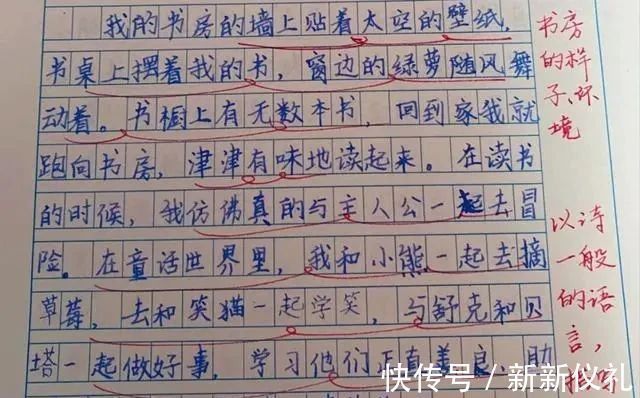 我的书房的墙上贴着太空的壁纸,
书桌上摆着我的书，窗边的绿萝随风舞
动着。书橱上有无数本书，回到家我就
跑向书房，津津有味地读起来。在读书
的时候，我仿佛真的与主人公一起去冒
险。在童话世界里，我和小熊一起去摘
草莓，去和笑猫一起学笑，与舒克和贝
塔一起做好事，学习他们正直善良，助
书房
的样
子、环
境
以诗
一般
的语
言，
快传号／新新仪礼